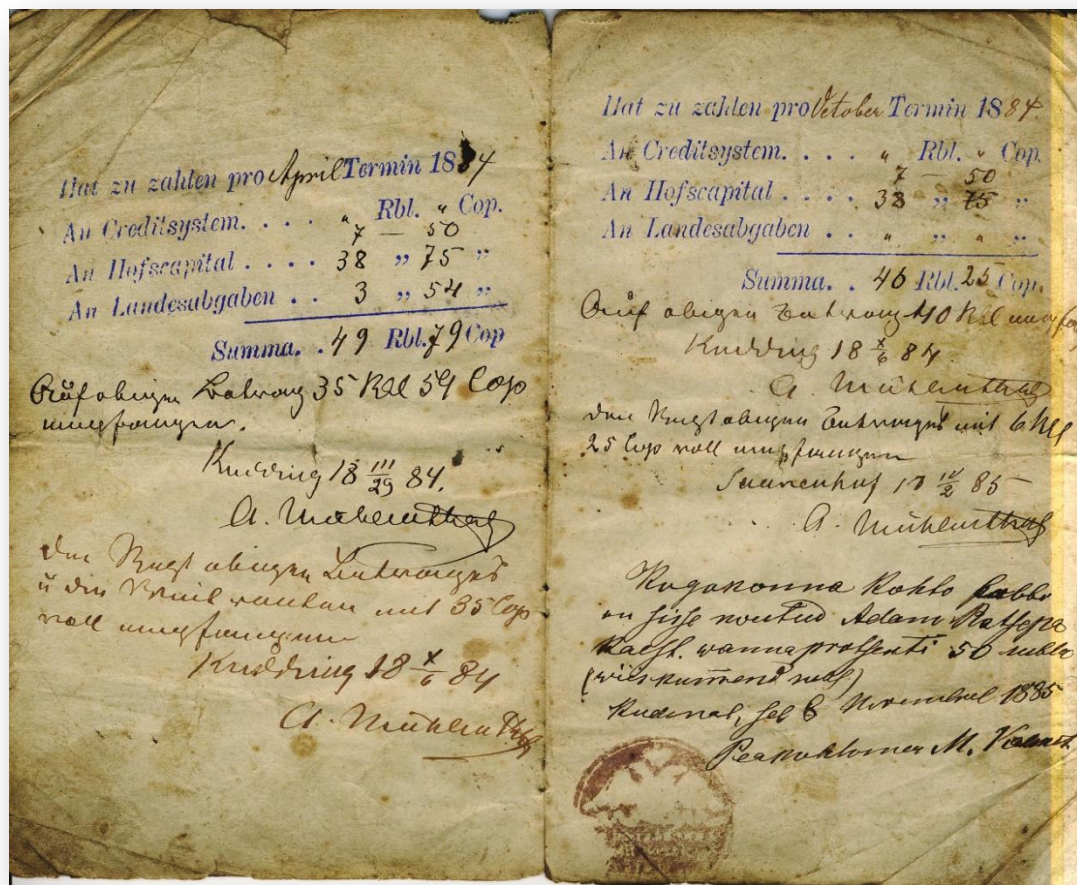 Hat zu zahlen pro April Termin 1884
An Creditsystem. . . . " Rbl. " Cop.
7 — 50
An Hofscapital . . . . 38 " 75 "
An Landesabgaben . . 3 " 54 "
Summa. . 49 Rbl. 79 Cop
Auf obigen Betrag 35 Rbl 59 Cop
empfangen.
Kudding 18 III/29 84.
A. Mühlenthal
Den Rest obigen Betrages
u die mit 35 Cop
voll empfangen
Kudding 18 X/6 84
A. Mühlenthal
Hat zu zahlen pro October Termin 1884.
An Creditsystem. . . . " Rbl. " Cop.
7 — 50
An Hofscapital . . . . 38 " 75 "
An Landesabgaben . . " " " "
Summa. . 46 Rbl. 25 Cop.
Auf obigen Betrag 40 Rbl
Kudding 18 X/6 84.
A Mühlenthal
Den Rest obigen Betrages mit 6 Rbl
25 Cop voll empfangen
Saarenhof 18 IV/2 85
A. Mühlenthal
Kogokonna Kohto
on sisse noutud Adam Ratsepa
kaest. wanna protsenti 50 rubla
(wiis kümmend rubl)
Kudinas, sel 6 Novembril 1885
Peakohtomer M.